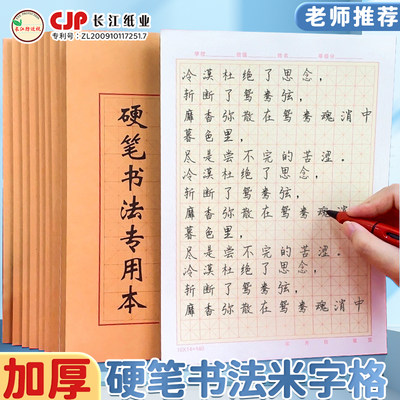 长江橡边纸
CJP 长江纸业
专利号：ZL200910117251.7
老师推荐
硬笔书法专用本
冷漠杜绝了思念，
斩断了鸳鸯弦，
麝香弥散在鸳鸯魂消中
暮色里，
尽是尝不完的苦涩．
冷漠杜绝了思念，
斩断了鸳鸯弦，
麝香弥散在鸳鸯魂消
暮色里，
尽是尝不完的苦涩．
冷漠杜绝了思念，
斩断了鸳鸯弦，
麝香弥散在鸳鸯魂消中
加厚 硬笔书法米字格